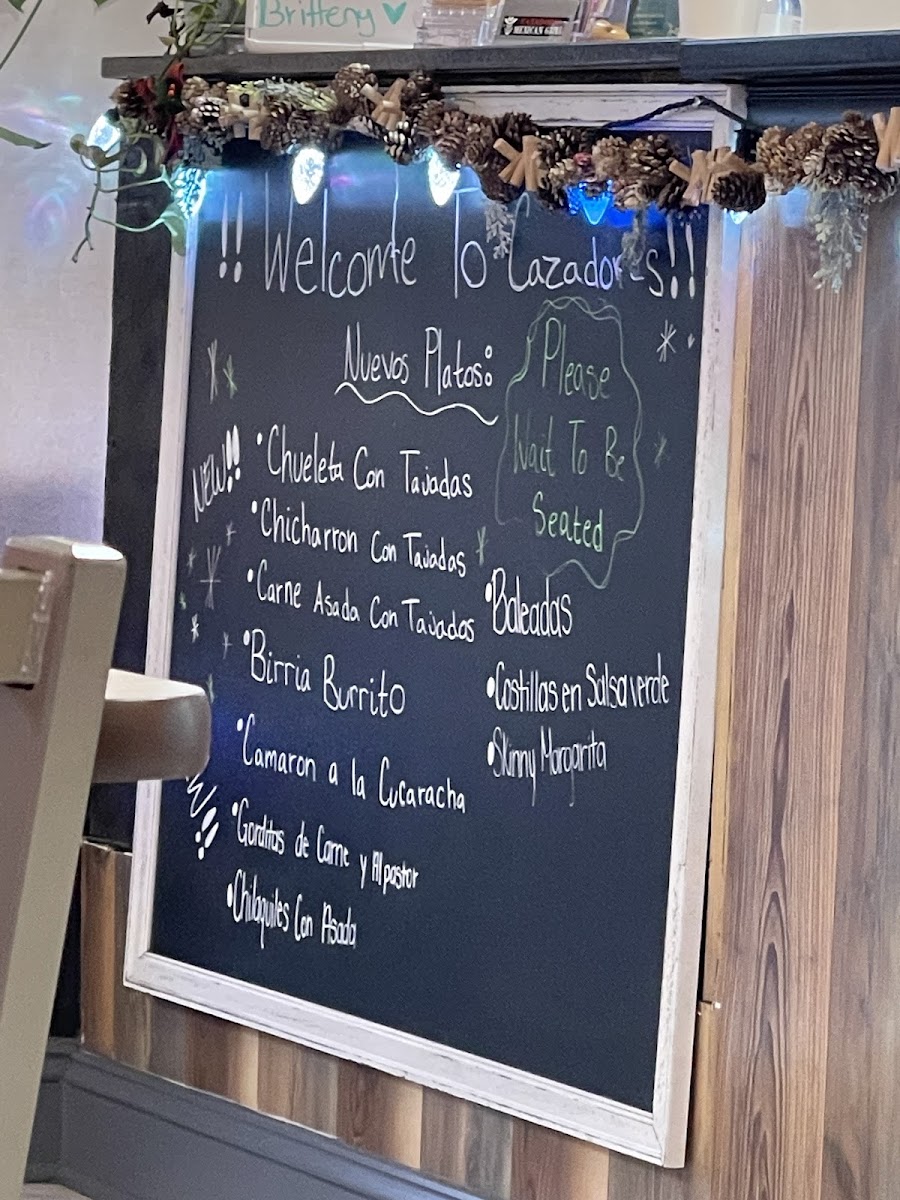 Britteny
MEXICAN GRILL
!! Welcome To Cazadores!!
Nuevos Platos:
Please
Wait To Be
Seated
NEW!!
•Chueleta Con Tajadas
•Chicharron Con Tajadas
•Carne Asada Con Tajados
•Birria Burrito
•Camaron a la Cucaracha
•Gorditas de Carne y Al pastor
•Chilaquiles Con Asada
•Baleadas
•Costillas en Salsa verde
•Skinny Margarita